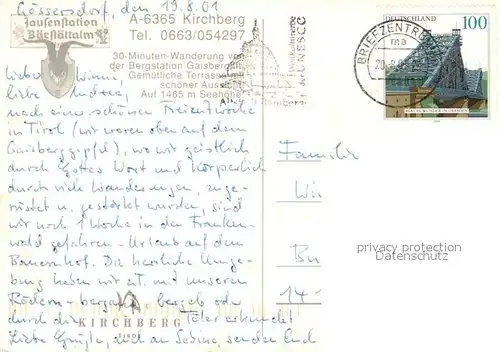 Gössersdorf, den 19.8.01
Jausenstation
Bärstättalm
A-6365 Kirchberg
Tel. 0663/054297
30-Minuten-Wanderung von
der Bergstation Gaisberg
Gemütliche Terrasse mit
schöner Aussicht
Auf 1465 m Seehöhe
UNESCO
BRIEFZENTRUM
DEUTSCHLAND
100
Lieber Winni,
liebe Andrea,
nach einer schönen Freizeitwoche
in Tirol (wir waren oben auf dem
Gaisberggipfel), wo wir geistlich
durch Gottes Wort und körperlich
durch viele Wanderungen, zuge-
rüstet u. gestärkt wurden, sind
wir noch 1 Woche in den Franken-
wald gefahren - Urlaub auf dem
Bauernhof. Die herrliche Umge-
bung haben wir mit unseren
Rädern - bergauf bergab oder
durch die Täler erkundet
Liebe Grüße, auch an Sabine, senden Euch
KIRCHBERG
TIROL
Familie
Wi
Bu
14-
privacy protection
Datenschutz